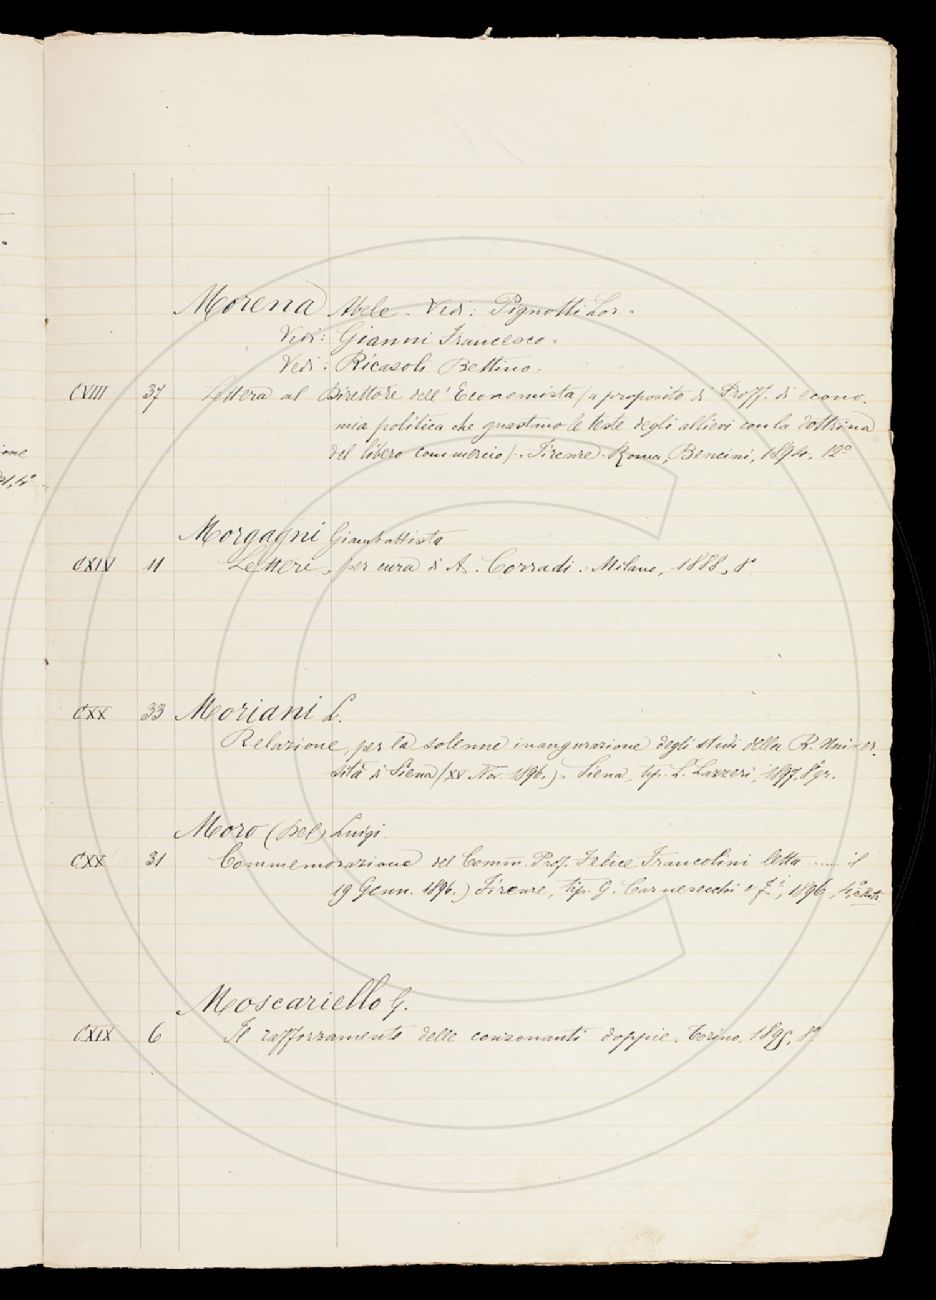 Morena Abele. Vedi: Pignotti Lor.
Vedi: Gianni Francesco.
Vedi: Ricasoli Bettino.
CVIII 37 Lettera al Direttore dell'Economista (a proposito di Proff. di econo-
mia politica che guastano le teste degli allievi con la dottrina
del libero commercio). Firenze-Roma, Bencini, 1894. 12°
Morgagni Giambattista
CXIV 11 Lettere, per cura di A. Corradi. Milano, 1888, 8°
CXX 33 Moriani L.
Relazione, per la solenne inaugurazione degli studi della R. Univer-
sità di Siena (XV Nov. 1896.). Siena, tip. L. Lazzeri, 1897. 8° gr.
Moro (Del) Luigi
CXX 31 Commemorazione del Comm. Prof. Felice Francolini letta ...... il
19 Genn. 1896.) Firenze, tip. G. Carnesecchi e F.i, 1896, 4°
Moscariello G.
CXIX 6 Il rafforzamento delle consonanti doppie. Torino, 1895, 8°
ione